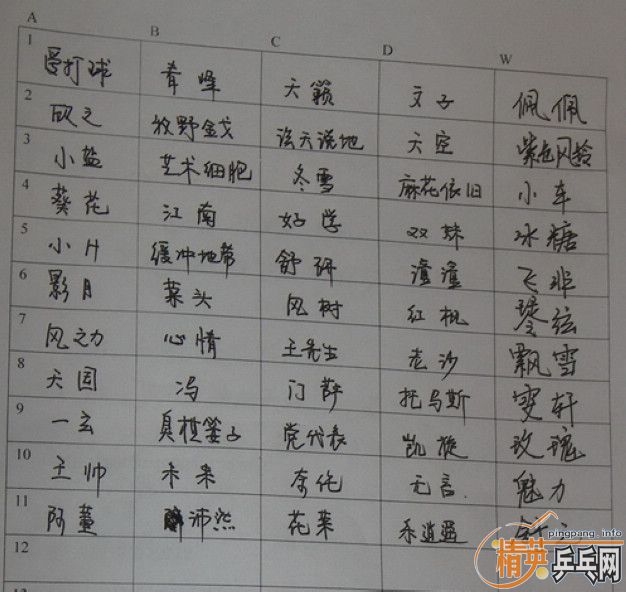 A B C D W
1 打球 青峰 天籁 文子 佩佩
2 欣之 牧野金戈 谈天说地 天空 紫色风铃
3 小盐 艺术细胞 冬雪 麻花依旧 小车
4 葵花 江南 好学 双妹 冰糖
5 小 缓冲地带 舒研 潼潼 飞非
6 影月 菜头 风树 红枫 琴弦
7 风之力 心情 王先生 老沙 飘雪
8 天国 冯 门萨 托马斯 雯轩
9 一玄 臭棋篓子 党代表 凯旋 玫瑰
10 王帅 未来 李佗 无言 魅力
11 阿董 沛然 花菜 逍遥
12
pingpang.info
精英乒乓网